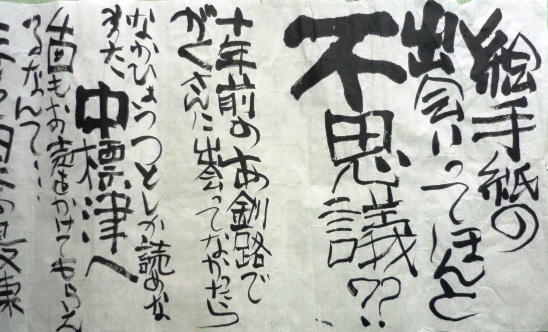 絵手紙の
出会いってほんと
不思議??
十年前のあ釧路で
がくさんに出会ってなかったら
なかひょうつとしか読めな
中標津へ
もお声をかけてもらえ
るなんて・・・